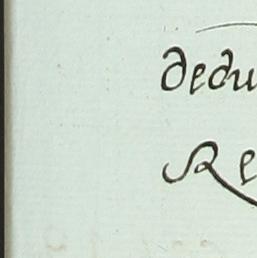 dedu
Re